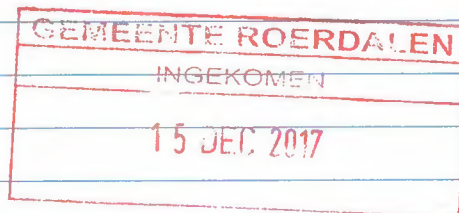 GEMEENTE ROERDALEN
INGEKOMEN
15 DEC 2017